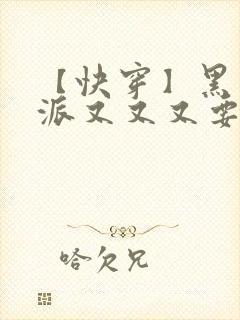 【快穿】黑
派又又又要
哈欠兄